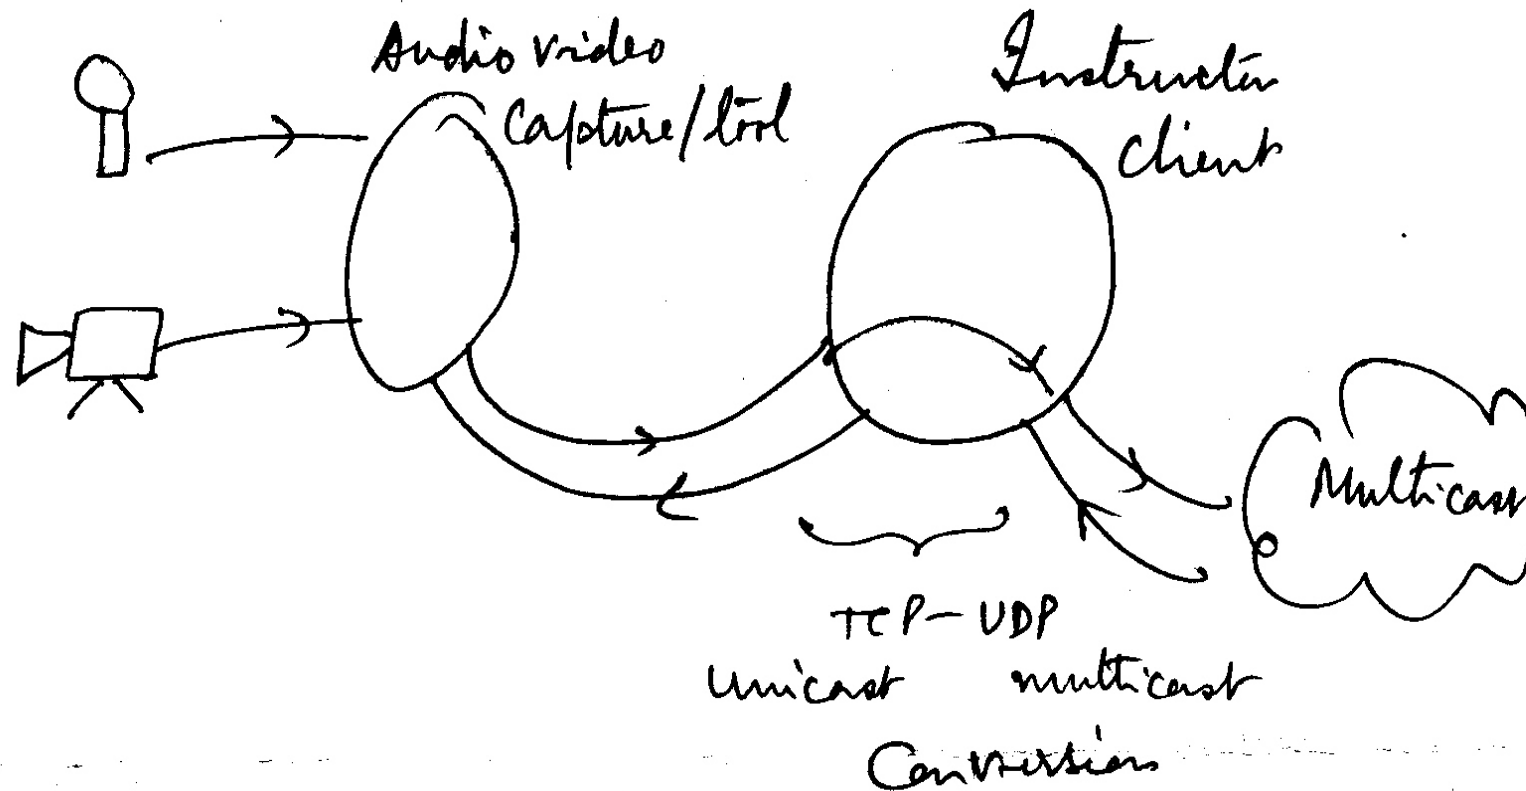 Audio video
Capture/tool
Instructor
client
Multicast
TCP - UDP
unicast multicast
Conversion